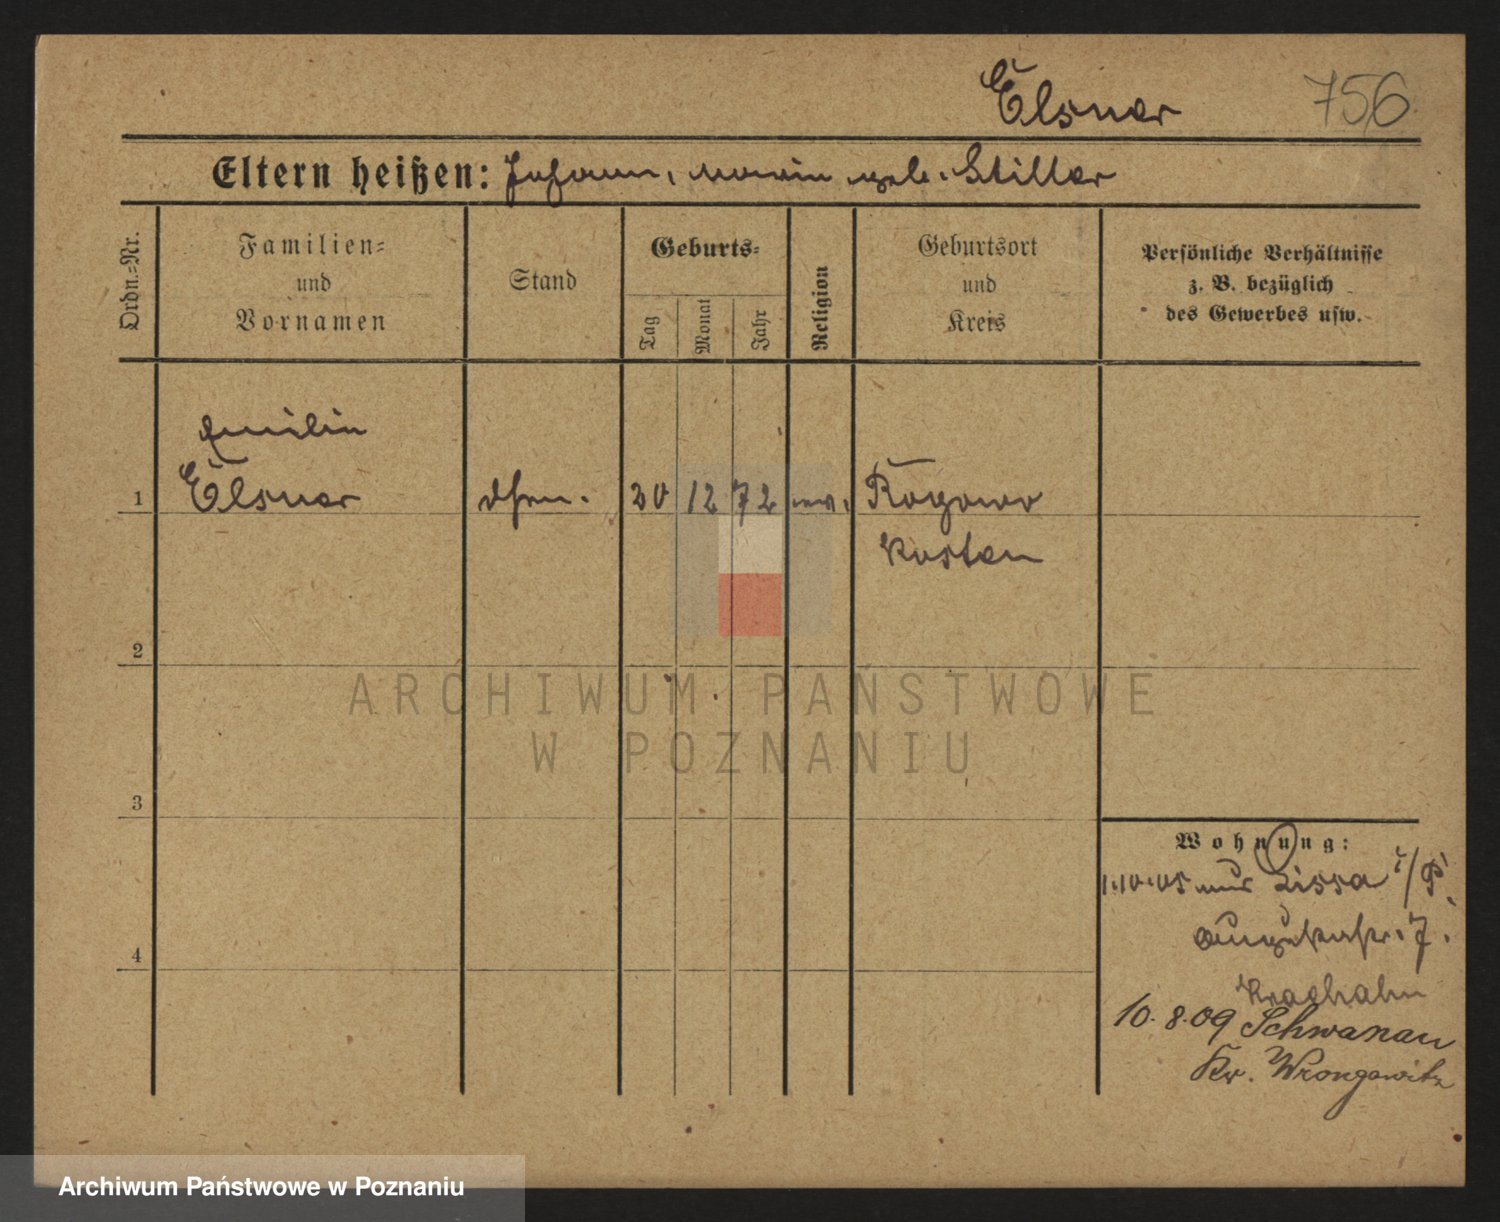 Elsner 756
Eltern heißen: Johann, Marie geb. Stiller
Ordn.=Nr.
Familien=
und
Vornamen
Stand
Geburts=
Tag
Monat
Jahr
Religion
Geburtsort
und
Kreis
Persönliche Verhältnisse
z. B. bezüglich
des Gewerbes usw.
Emilie
1 Elsner 20 12 72 ev. Rogowo
Kosten
2
ARCHIWUM PAŃSTWOWE
W POZNANIU
3
Wohnung:
1.10.05 Lissa i/P.
7.
4
10.8.09 Schwanau
Kr. Wrongowitz
Archiwum Państwowe w Poznaniu